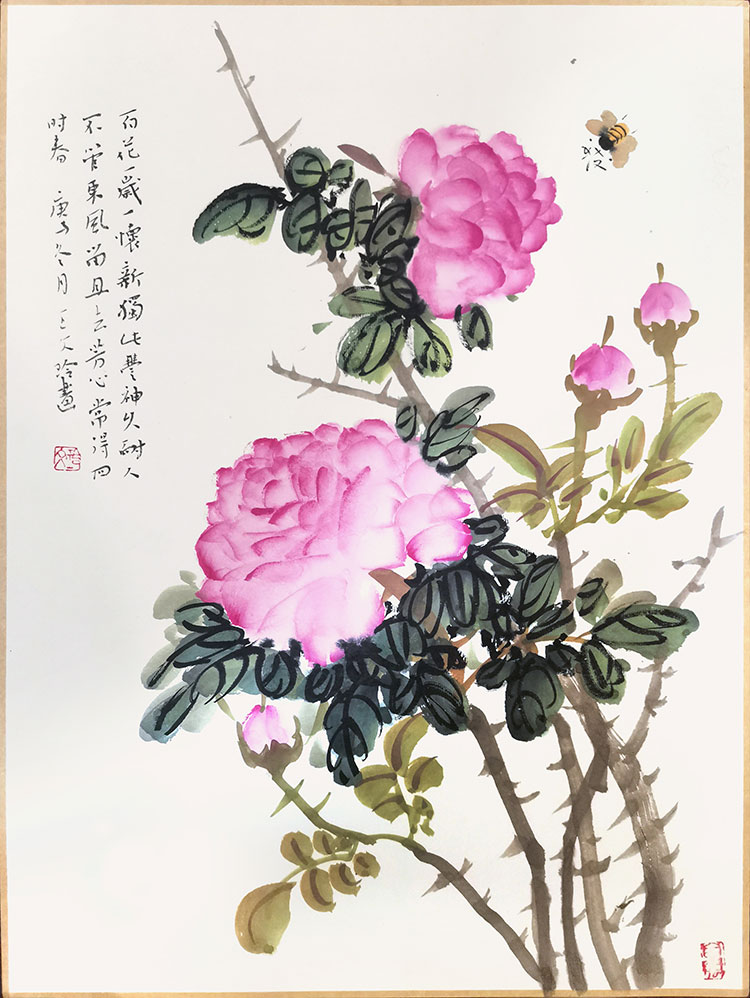 百花一歲一懷新獨此豐神久耐人
不管東風留且去芳心常得四
时春 庚子冬月 王文玲畫